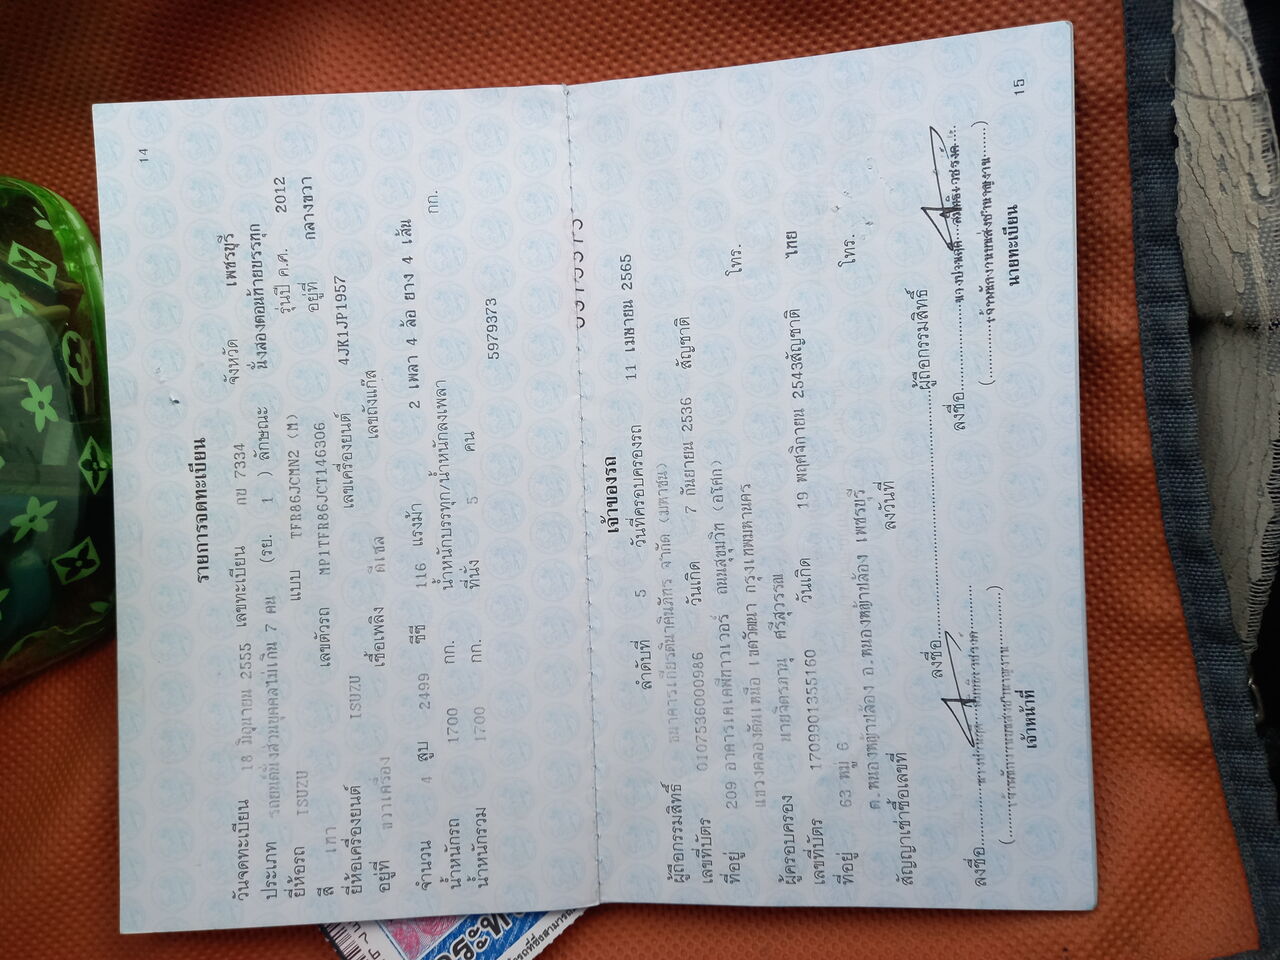 14
รายการจดทะเบียน
วันจดทะเบียน 18 มิถุนายน 2555 เลขทะเบียน กย 7334 จังหวัด เพชรบุรี
ประเภท รถยนต์นั่งส่วนบุคคลไม่เกิน 7 คน (รย. 1 ) ลักษณะ นั่งสองตอนท้ายบรรทุก
ยี่ห้อรถ ISUZU แบบ TFR86JCMN2 (M) รุ่นปี ค.ศ. 2012
สี เทา เลขตัวรถ MP1TFR86JCT146306 อยู่ที่ กลางขวา
ยี่ห้อเครื่องยนต์ ISUZU เลขเครื่องยนต์ 4JK1JP1957
อยู่ที่ ขวาเครื่อง เชื้อเพลิง ดีเซล เลขถังแก๊ส
จำนวน 4 สูบ 2499 ซีซี 116 แรงม้า 2 เพลา 4 ล้อ ยาง 4 เส้น
น้ำหนักรถ 1700 กก. น้ำหนักบรรทุก/น้ำหนักลงเพลา กก.
น้ำหนักรวม 1700 กก. ที่นั่ง 5 คน 5979373
เจ้าของรถ
ลำดับที่ 5 วันที่ครอบครองรถ 11 เมษายน 2565
ผู้ถือกรรมสิทธิ์ ธนาคารเกียรตินาคินภัทร จำกัด (มหาชน)
เลขที่บัตร 0107536000986 วันเกิด 7 กันยายน 2536 สัญชาติ
ที่อยู่ 209 อาคารเคเคพีทาวเวอร์ ถนนสุขุมวิท (อโศก) โทร.
แขวงคลองตันเหนือ เขตวัฒนา กรุงเทพมหานคร
ผู้ครอบครอง นายจิตรภานุ ศรีสุวรรณ
เลขที่บัตร 1709901355160 วันเกิด 19 พฤศจิกายน 2543สัญชาติ ไทย
ที่อยู่ 63 หมู่ 6 โทร.
ต.หนองหญ้าปล้อง อ.หนองหญ้าปล้อง เพชรบุรี
สัญญาเช่าซื้อเลขที่ ลงวันที่
ลงชื่อ ผู้ถือกรรมสิทธิ์
ลงชื่อ ลงชื่อ
(เจ้าพนักงานขนส่งชำนาญงาน) (เจ้าพนักงานขนส่งชำนาญงาน)
เจ้าหน้าที่ นายทะเบียน
15